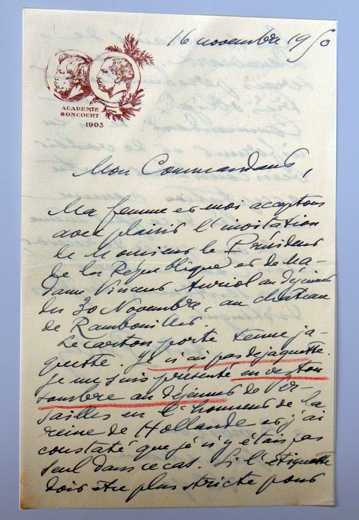 16 novembre 1950
ACADEMIE
GONCOURT
1903
Mon Commandant,
Ma femme et moi acceptons
avec plaisir l'invitation
de Monsieur le Président
de la République et de Ma-
dame Vincent Auriol au déjeuner
du 30 Novembre, au château
de Rambouillet.
Le carton porte tenue ja-
quette. Je n'ai pas de jaquette.
Je me suis présenté en veston
sombre au déjeuner de Ver-
sailles en l'honneur de la
reine de Hollande et j'ai
constaté que je n'y étais pas
seul dans ce cas. Si l'étiquette
doit être plus stricte pour